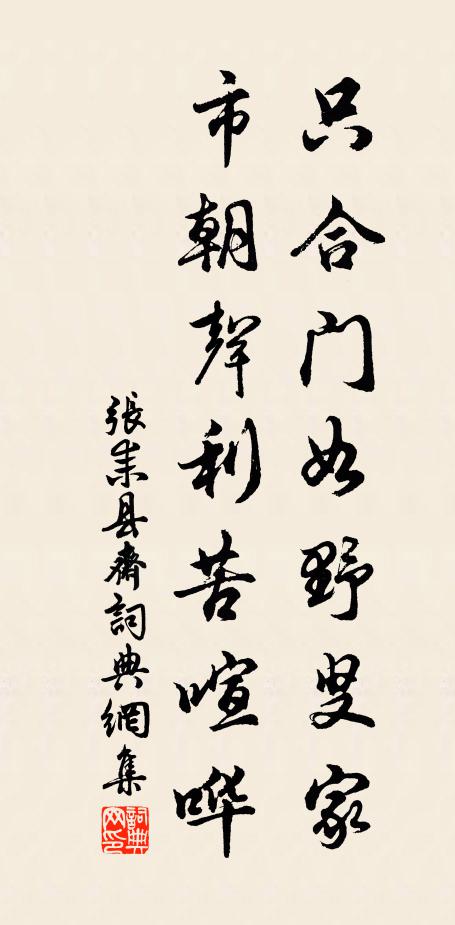 只合门如野叟家
市朝聲利苦喧哗
張耒县齋詞典網集
詞典网印